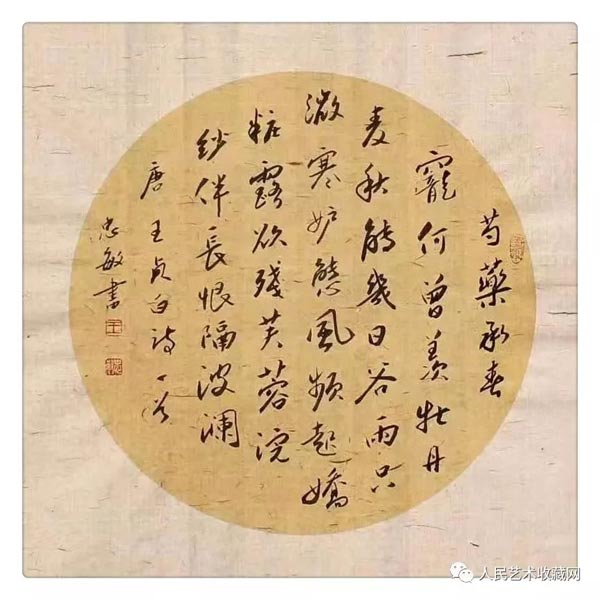 芍藥承春
寵何曾羨牡丹
麦秋能幾日谷雨只
微寒妒態風頻起嬌
粧露欲残芙蓉浣
紗伴長恨隔波瀾
唐王贞白詩一首
忠敏書
人民艺术收藏网